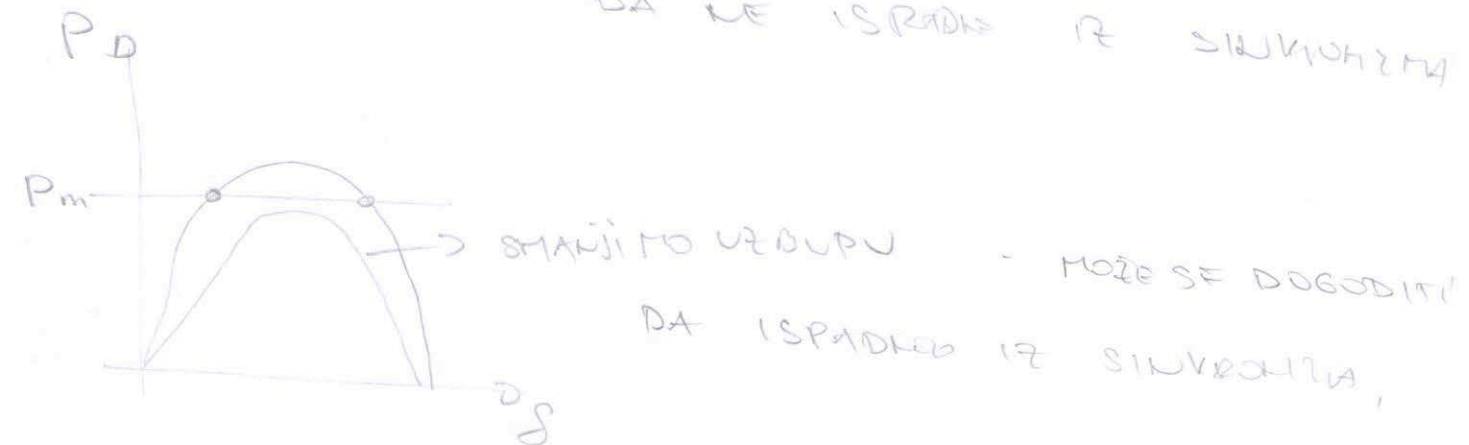 DA NE ISPADNE IZ SINKRONIZMA
P
Pm
SMANJIMO UZBUDU - MOŽE SE DOGODITI
DA ISPADNEO IZ SINKRONIZA,
δ